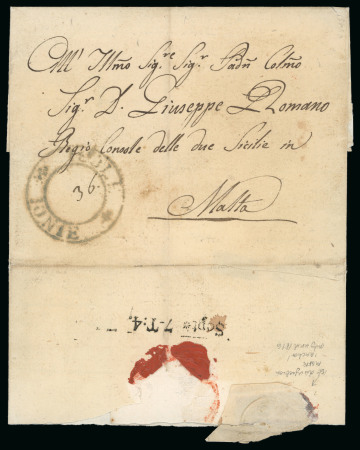 All' Illmo Sigre Sigr Padn Colmo
Sigr D. Giuseppe Romano
Regio Console delle due Sicilie in
Malta
ISOLE
IONIE
36
Septr 7-T:4